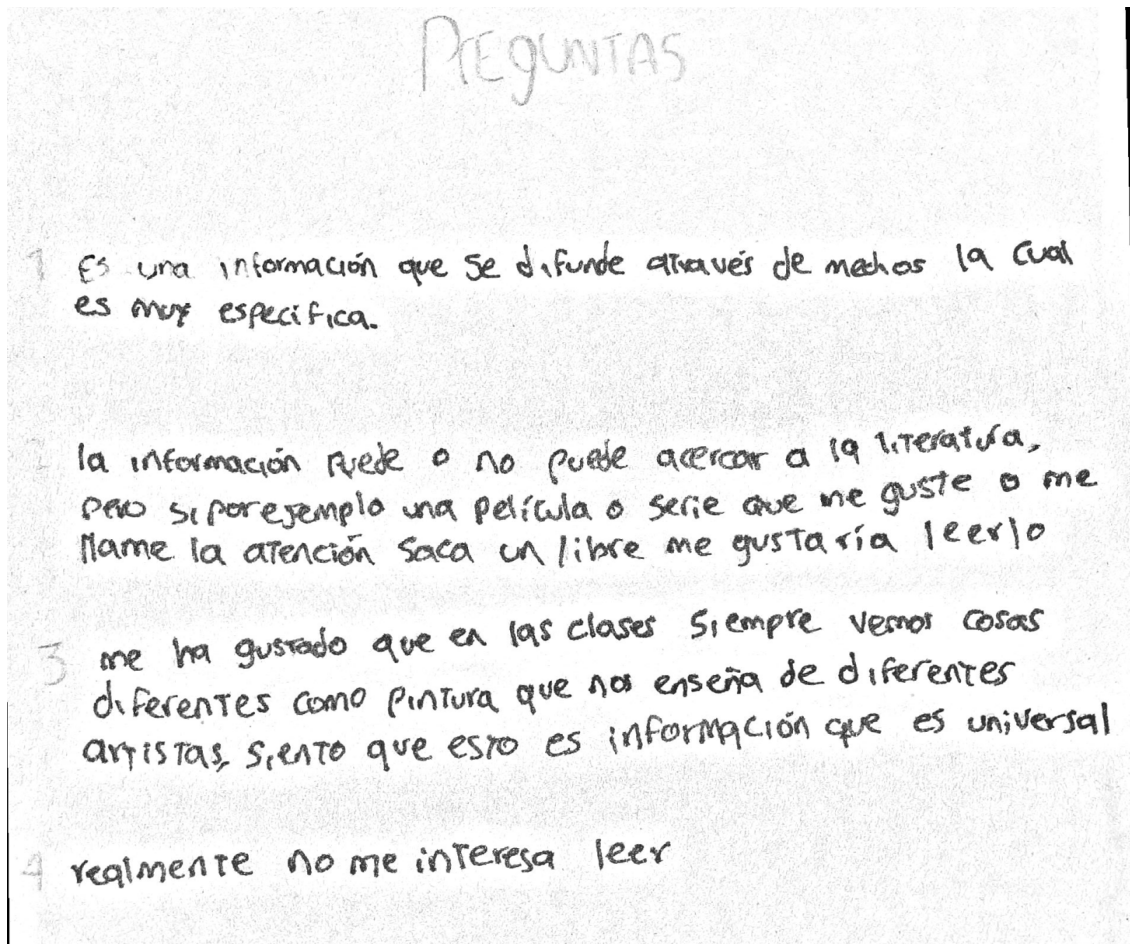 PREGUNTAS
1 Es una información que se difunde através de medios la cual
es muy especifica.
2 la información puede o no puede acercar a la literatura,
pero si por ejemplo una película o serie que me guste o me
llame la atención saca un libre me gustaría leerlo
3 me ha gustado que en las clases siempre vemos cosas
diferentes como pintura que nos enseña de diferentes
artistas, siento que esto es información que es universal
4 realmente no me interesa leer